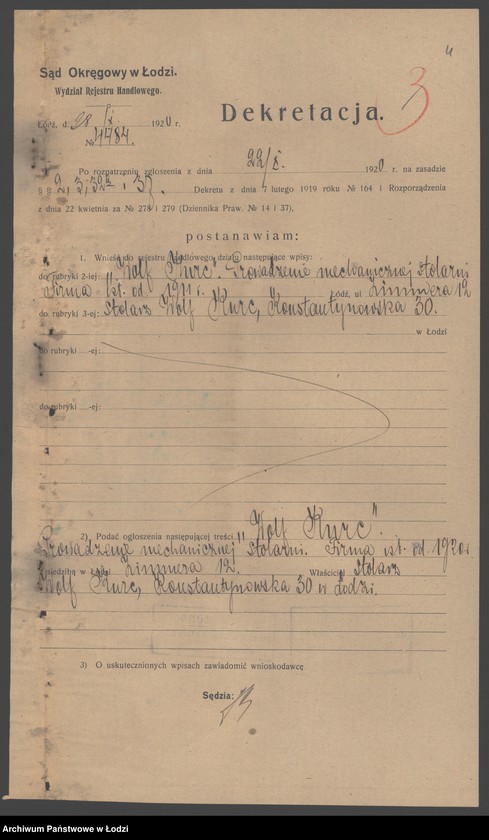 4
3
Sąd Okręgowy w Łodzi.
Wydział Rejestru Handlowego.
Dekretacja.
Łódź, d. 28/X. 1920 r.
№ 4784.
Po rozpatrzeniu zgłoszenia z dnia 22/X. 1920 r. na zasadzie
§ § 2, 3, 32a i 37. Dekretu z dnia 7 lutego 1919 roku № 164 i Rozporządzenia
z dnia 22 kwietnia za № 278 i 279 (Dziennika Praw. № 14 i 37),
postanawiam:
1. Wnieść do rejestru handlowego działu następujące wpisy:
do rubryki 2-iej: "Wolf Kurc". Prowadzenie mechanicznej stolarni
Firma ist. od 1911 r. Łódź, ul. Zimmera 12
do rubryki 3-ej: Stolarz Wolf Kurc, Konstantynowska 30.
w Łodzi
do rubryki -ej:
do rubryki -ej:
2) Podać ogłoszenia następującej treści: "Wolf Kurc".
Prowadzenie mechanicznej stolarni. Firma ist. od 1920 r.
Siedziba w Łodzi Zimmera 12. Właściciel Stolarz
Wolf Kurc, Konstantynowska 30 w Łodzi.
3) O uskutecznionych wpisach zawiadomić wnioskodawcę.
Sędzia:
Archiwum Państwowe w Łodzi